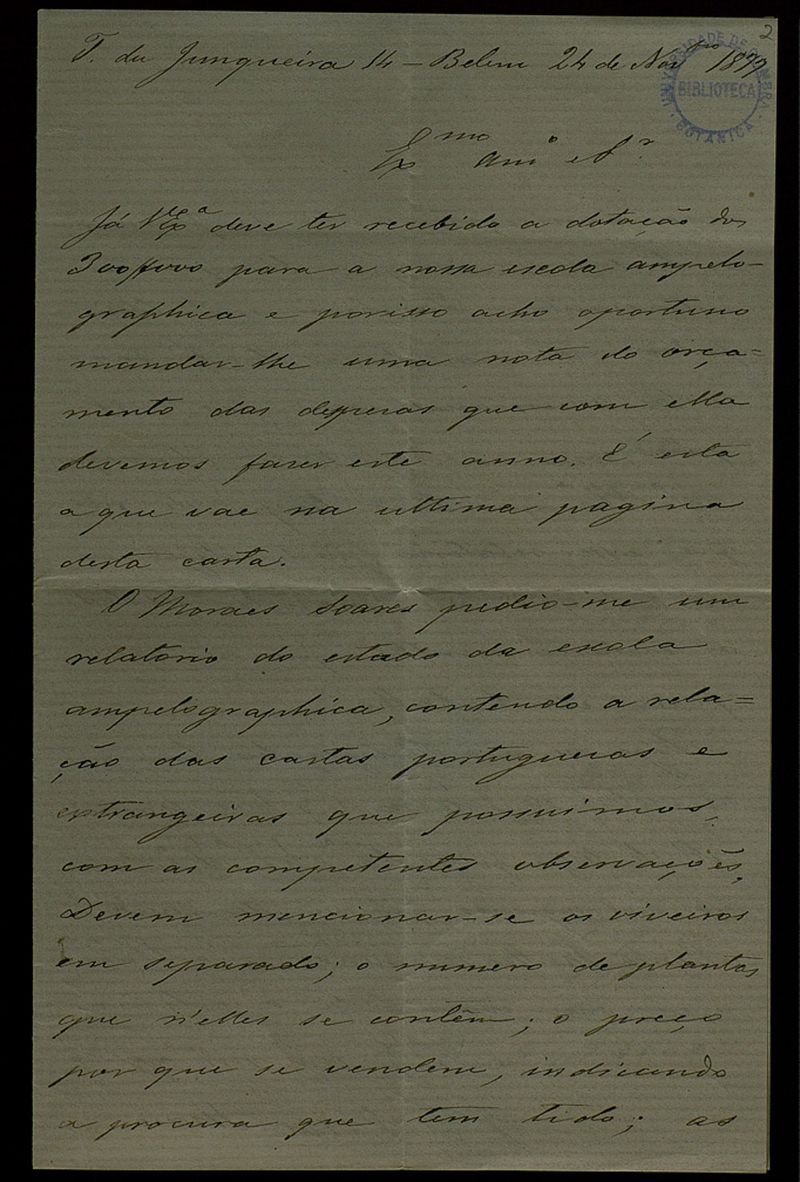 2
T. da Junqueira 14 – Belem 24 de Novbro 1879
UNIVERSIDADE DE COIMBRA
BIBLIOTECA
BOTANICA
Exmo amo e Sr.
Já V Exa deve ter recebido a dotação dos
300$000 para a nossa escola ampelo-
graphica e porisso acho oportuno
mandar-lhe uma nota do orça=
mento das despesas que com ella
devemos fazer este anno. É esta
a que vae na ultima pagina
desta carta.
O Moraes Soares pedio-me um
relatorio do estado da escola
ampelographica, contendo a rela=
ção das castas portuguesas e
estrangeiras que possuimos,
com as competentes observações.
Devem mencionar-se os viveiros
em separado; o numero de plantas
que n'elles se contêm; o preço
por que se vendem, indicando
a procura que tem tido; as